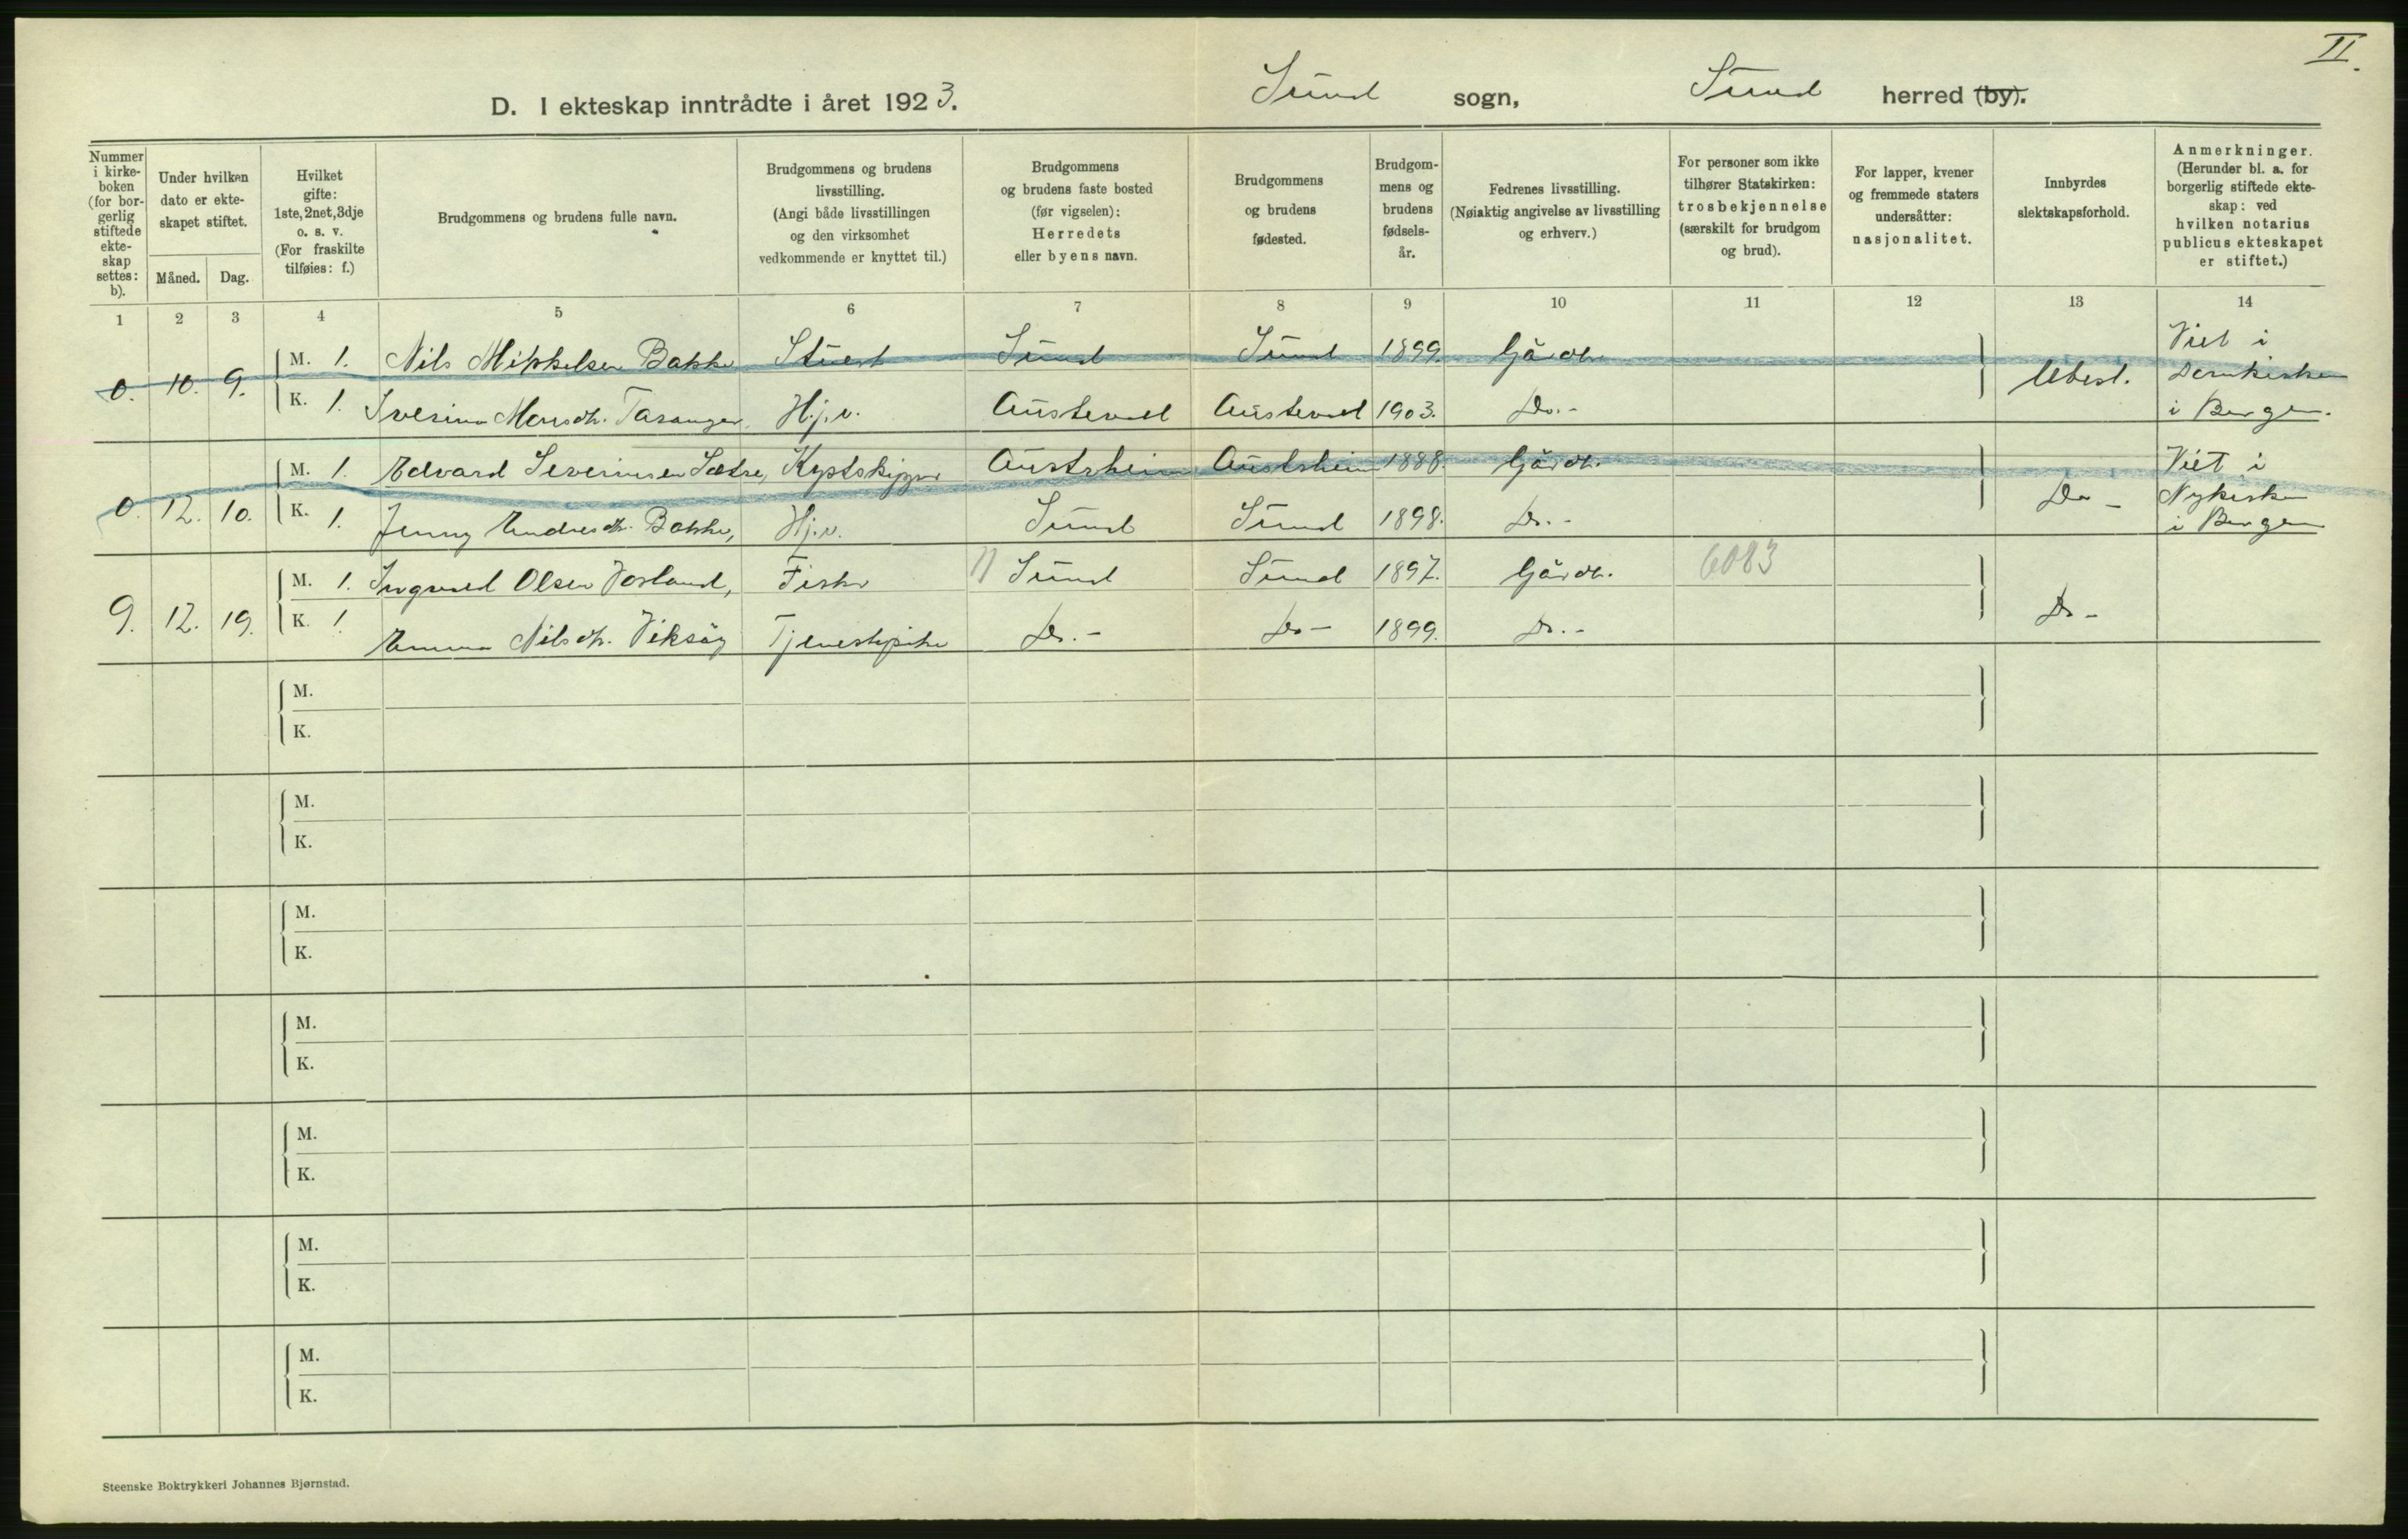 II.
D. I ekteskap inntrådte i året 1923. Sund sogn, Sund herred (by).
Nummer i kirkeboken (for borgerlig stiftede ekteskap settes: b).
Under hvilken dato er ekteskapet stiftet.
Måned. Dag.
Hvilket gifte: 1ste, 2net, 3dje o. s. v. (For fraskilte tilføies: f.)
Brudgommens og brudens fulle navn.
Brudgommens og brudens livsstilling. (Angi både livsstillingen og den virksomhet vedkommende er knyttet til.)
Brudgommens og brudens faste bosted (før vigselen): Herredets eller byens navn.
Brudgommens og brudens fødested.
Brudgommens og brudens fødselsår.
Fedrenes livsstilling. (Nøiaktig angivelse av livsstilling og erhverv.)
For personer som ikke tilhører Statskirken: trosbekjennelse (særskilt for brudgom og brud).
For lapper, kvener og fremmede staters undersåtter: nasjonalitet.
Innbyrdes slektskapsforhold.
Anmerkninger. (Herunder bl. a. for borgerlig stiftede ekteskap: ved hvilken notarius publicus ekteskapet er stiftet.)
1 2 3 4 5 6 7 8 9 10 11 12 13 14
0. 10. 9. M. 1. Nils Mikkelsen Bakke Stuert Sund Sund 1899. Gårdbr. Ubesl. Viet i Domkirken i Bergen.
K. 1. Iverina Monsdtr. Taranger, Hj.v. Austevoll Austevoll 1903. Do.-
0. 12. 10. M. 1. Edvard Severinsen Sætre, Kystskipper Austrheim Austrheim 1888. Gårdbr. Do - Viet i Nykirken i Bergen
K. 1. Jenny Andresdtr. Bakke, Hj.v. Sund Sund 1898. Do.-
9. 12. 19. M. 1. Ingvald Olsen Vorland, Fisker Sund Sund 1897. Gårdbr. 6083 Do -
K. 1. Emma Nilsdtr. Viksöy Tjenestepike Do.- Do - 1899. Do.-
M.
K.
M.
K.
M.
K.
M.
K.
M.
K.
M.
K.
M.
K.
Steenske Boktrykkeri Johannes Bjørnstad.